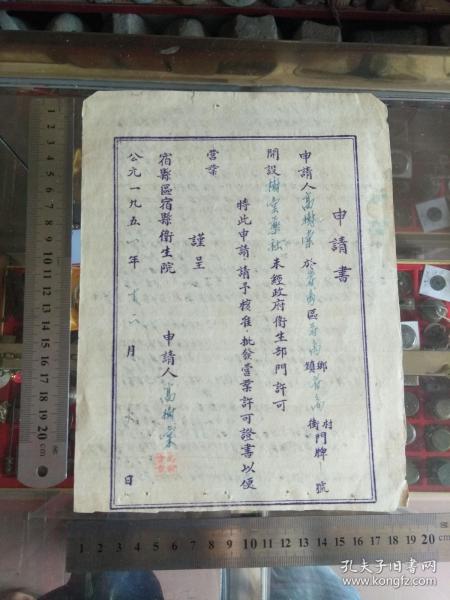 申請書
申請人高樹棠於 區 南鄉鎮 村街門牌 號
開設樹雲藥社未經政府衛生部門許可
特此申請請予核准批發營業許可證書以便
營業
謹呈
宿縣區宿縣衛生院
申請人高樹棠
公元一九五 年十二月 日
0 1 2 3 4 5 6 7 8 9 10 11 12 13 14 15 16 17 18 19 20 cm
1 2 3 4 5 6 7 8 9 10 11 12 13 14 15 16 17 18 19 20 cm
孔夫子旧书网
www.kongfz.com